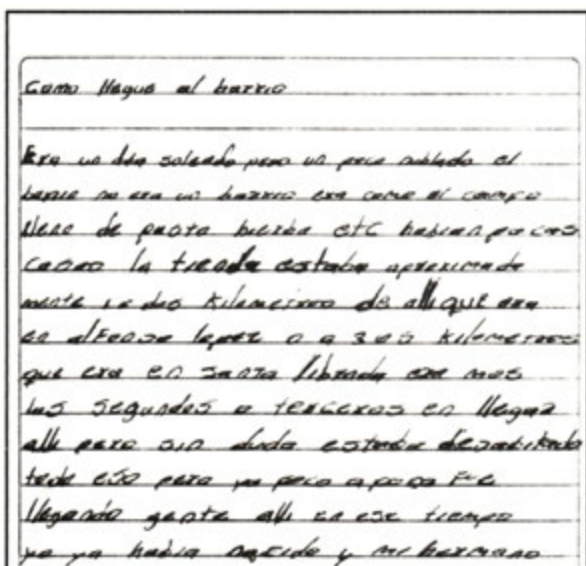 Como llegue al barrio
Era un dia soleado pero un poco nublado el
barrio no era un barrio era como el campo
lleno de pasto hierba etc habian pocas
casas la tienda estaba aproximada
mente a dos kilometros de alli que era
en alfonso lopez o a 3 o 5 kilometros
que era en santa librada
los segundos o terceros en llegar
alli pero sin duda estaba desabitado
todo eso pero poco a poco fue
llegando gente alli en ese tiempo
yo ya habia nacido y mi hermano